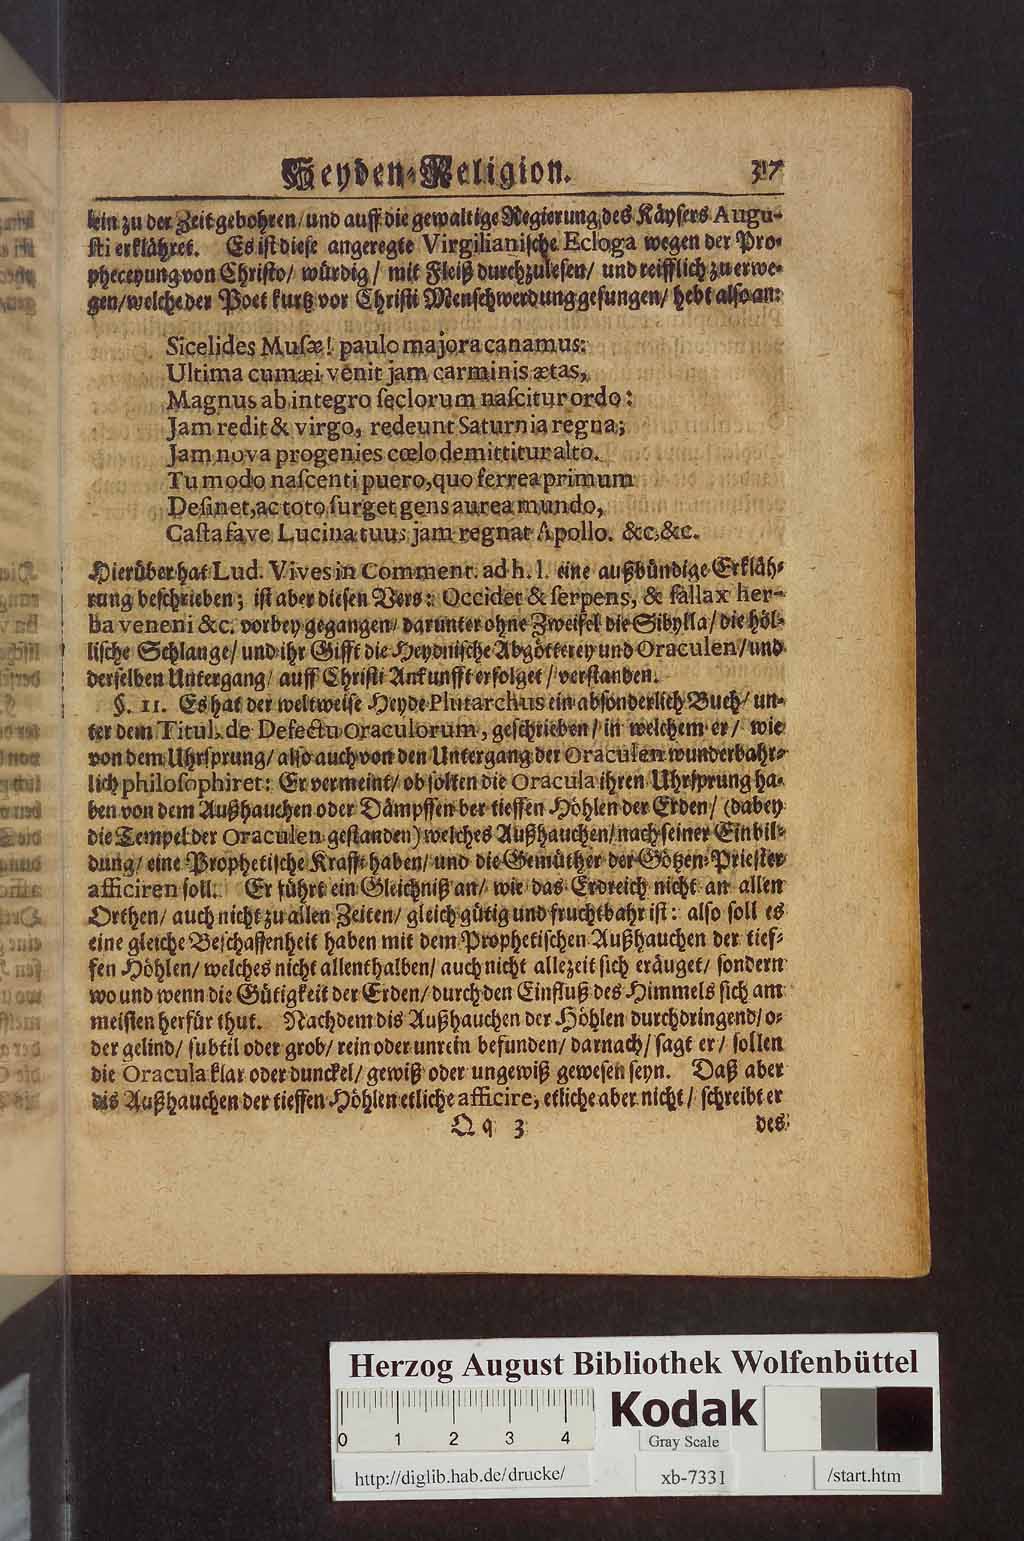 Heyden-Religion. 317
lein zu der Zeit gebohren/ und auff die gewaltige Regierung des Käysers Augu-
sti erklähret. Es ist diese angeregte Virgilianische Ecloga wegen der Pro-
pheceyung von Christo/ würdig/ mit Fleiß durchzulesen/ und reifflich zu erwe-
gen/ welche der Poet kurtz vor Christi Menschwerdung gesungen/ hebt also an:
Sicelides Musæ! paulo majora canamus:
Ultima cumæi venit jam carminis ætas,
Magnus ab integro ſeclorum naſcitur ordo:
Jam redit & virgo, redeunt Saturnia regna;
Jam nova progenies cœlo demittitur alto.
Tu modo naſcenti puero, quo ferrea primum
Deſinet, ac toto ſurget gens aurea mundo,
Caſta fave Lucina tuus jam regnat Apollo. &c. &c.
Hierüber hat Lud. Vives in Comment. ad h. l. eine außbündige Erkläh-
rung beschrieben; ist aber diesen Vers: Occidet & ſerpens, & fallax her-
ba veneni &c. vorbey gegangen/ darunter ohne Zweifel die Sibylla/ die höl-
lische Schlange/ und ihr Gifft die Heydnische Abgötterey und Oraculen/ und
derselben Untergang/ auff Christi Ankunfft erfolget/ verstanden.
§. 11. Es hat der weltweise Heyde Plutarchus ein absonderlich Buch/ un-
ter dem Titul, de Defectu Oraculorum, geschrieben/ in welchem er/ wie
von dem Uhrsprung/ also auch von den Untergang der Oraculen wunderbahr-
lich philoſophiret: Er vermeint/ ob solten die Oracula ihren Uhrsprung ha-
ben von dem Außhauchen oder Dämpffen der tieffen Höhlen der Erden/ (dabey
die Tempel der Oraculen gestanden) welches Außhauchen/ nach seiner Einbil-
dung/ eine Prophetische Krafft haben/ und die Gemüther der Götzen-Priester
afficiren soll. Er führt ein Gleichniß an/ wie das Erdreich nicht an allen
Orthen/ auch nicht zu allen Zeiten/ gleich gütig und fruchtbahr ist: also soll es
eine gleiche Beschaffenheit haben mit dem Prophetischen Außhauchen der tief-
fen Höhlen/ welches nicht allenthalben/ auch nicht allezeit sich eräuget/ sondern
wo und wenn die Gütigkeit der Erden/ durch den Einfluß des Himmels sich am
meisten herfür thut. Nachdem dis Außhauchen der Höhlen durchdringend/ o-
der gelind/ subtil oder grob/ rein oder unrein befunden/ darnach/ sagt er/ sollen
die Oracula klar oder dunckel/ gewiß oder ungewiß gewesen seyn. Daß aber
dis Außhauchen der tieffen Höhlen etliche afficire, etliche aber nicht/ schreibt er
Qq 3 des
Herzog August Bibliothek Wolfenbüttel
0 1 2 3 4
Kodak
Gray Scale
http://diglib.hab.de/drucke/ xb-7331 /start.htm